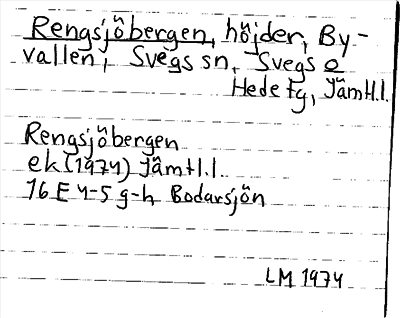 Rengsjöbergen, höjder, By-
vallen, Svegs sn, Svegs o
Hede tg, Jämtl.l.
Rengsjöbergen
ek (1974) Jämtl.l.
16 E 4-5 g-h Bodarsjön
LM 1974